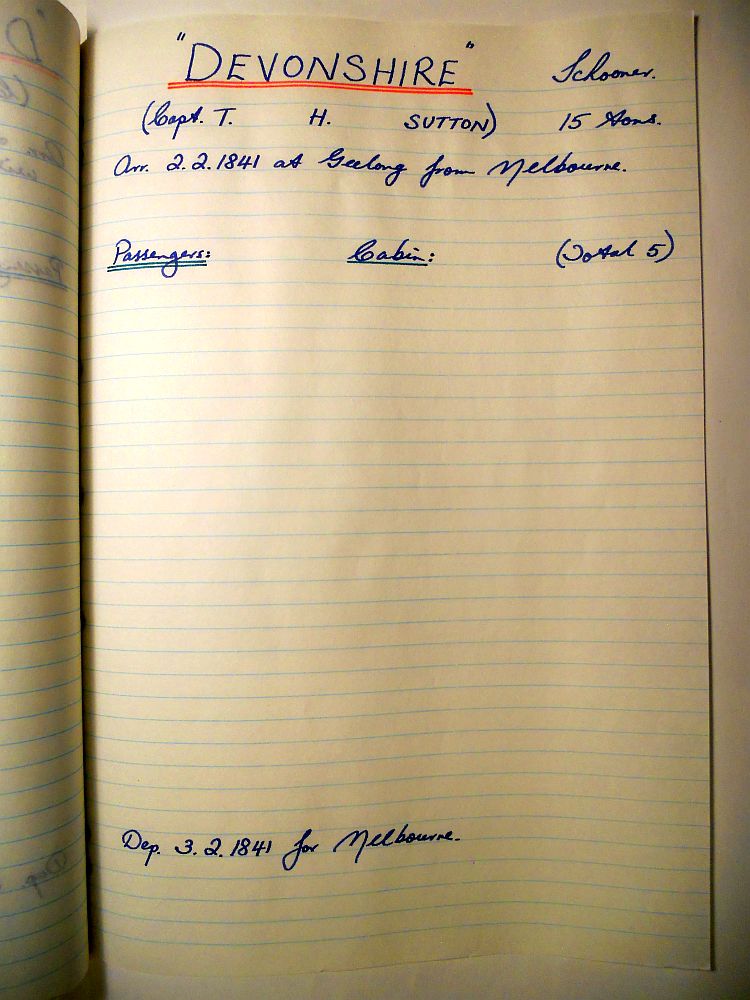 "DEVONSHIRE" Schooner.
(Capt. T. H. SUTTON) 15 tons.
Arr. 2.2.1841 at Geelong from Melbourne.
Passengers: Cabin: (Total 5)
Dep. 3.2.1841 for Melbourne.